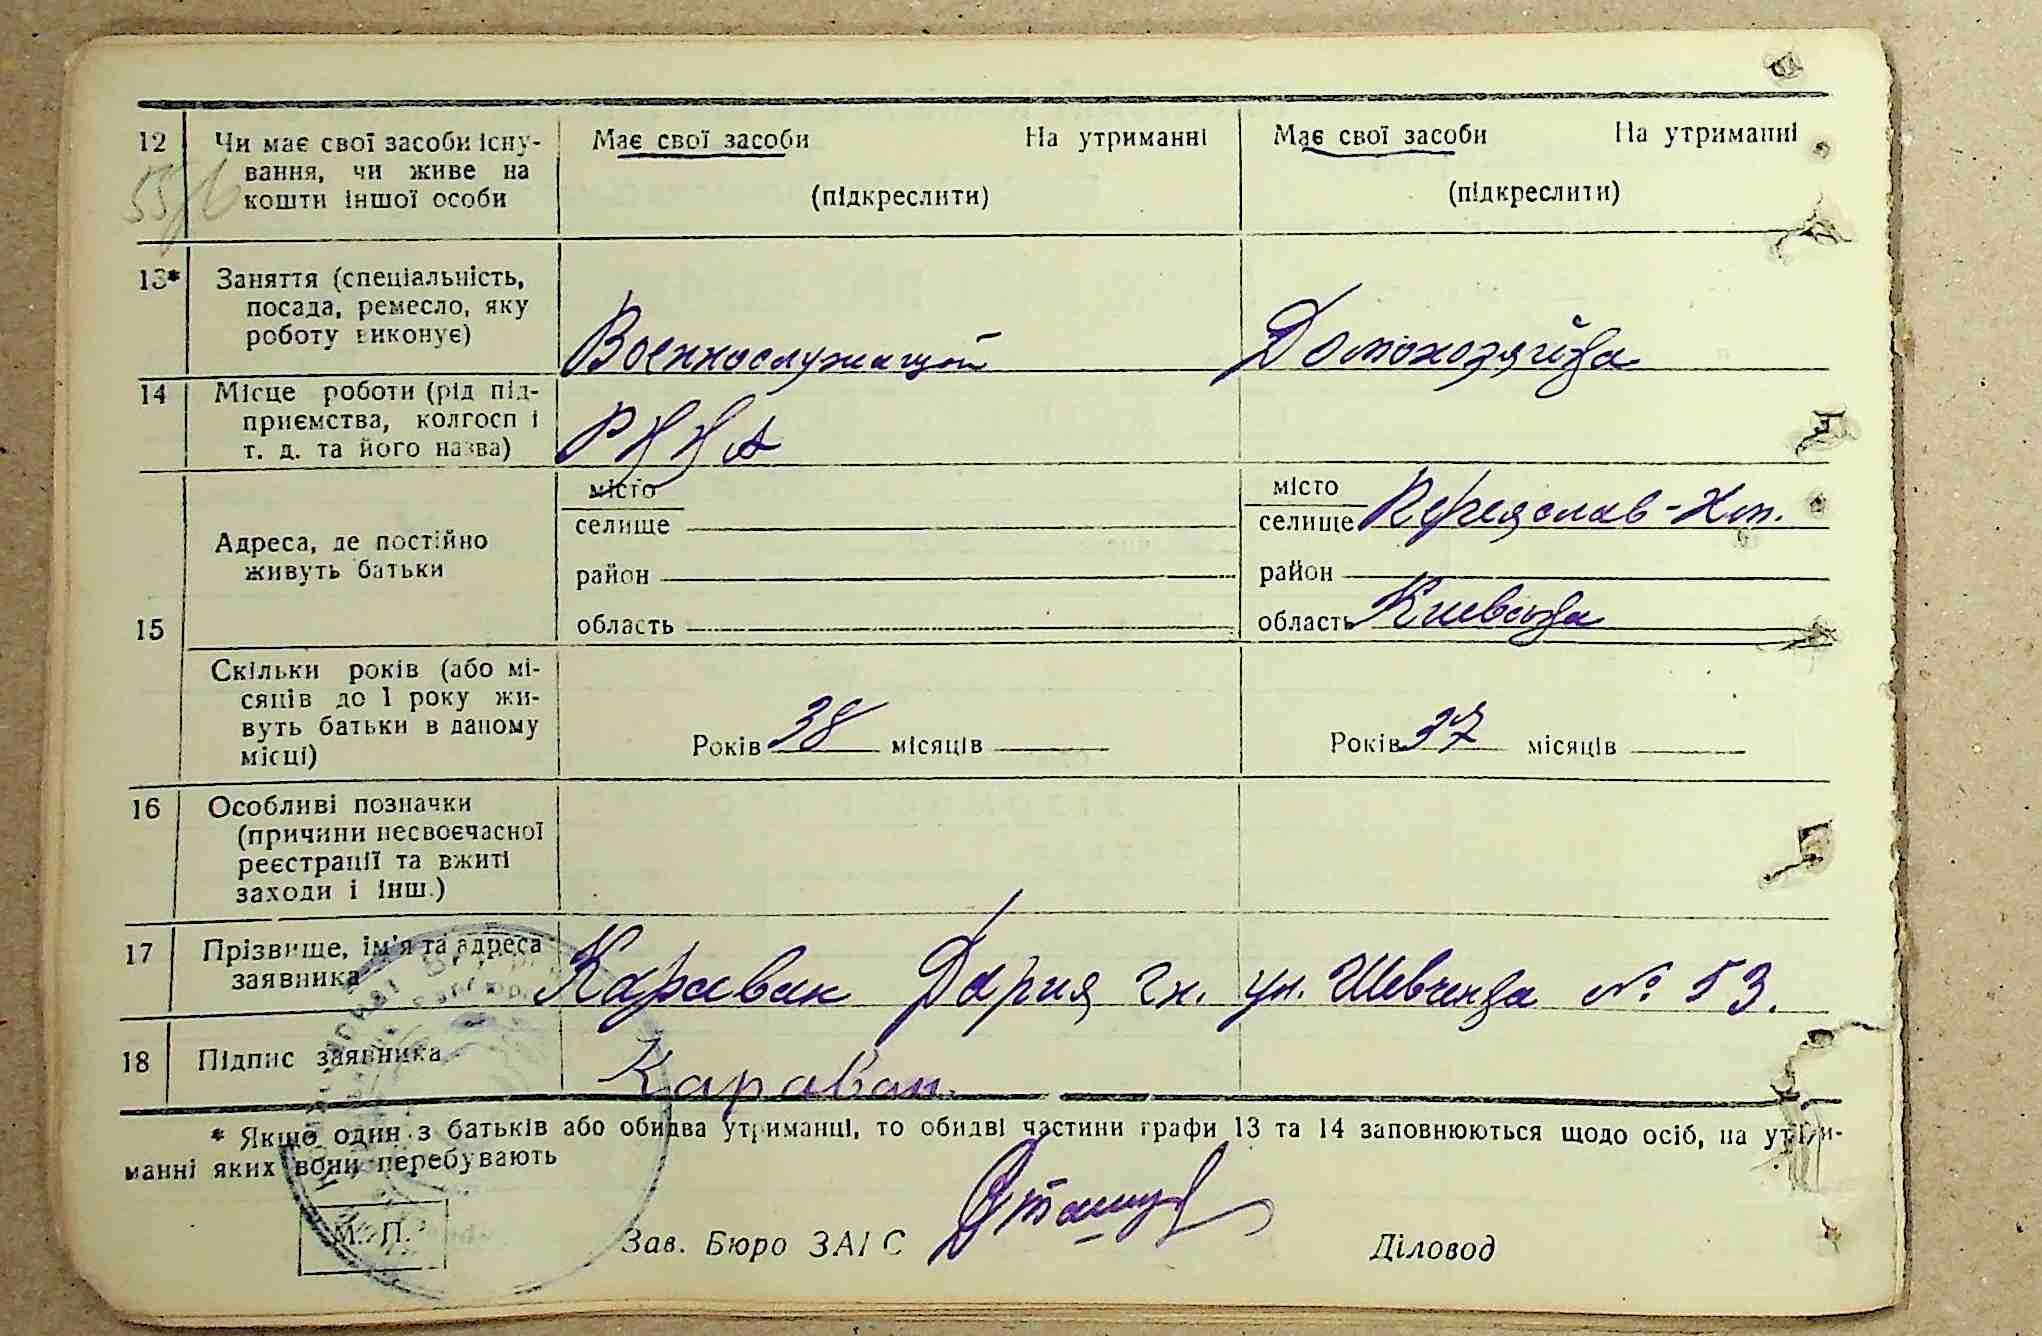 12 Чи має свої засоби існу- Має свої засоби На утриманні Має свої засоби На утриманні
вання, чи живе на
кошти іншої особи (підкреслити) (підкреслити)
13* Заняття (спеціальність,
посада, ремесло, яку
роботу виконує) Военнослужащий Домохозяйка
14 Місце роботи (рід під-
приємства, колгосп і РККА
т. д. та його назва)
місто місто
селище селище Переяслав-Хм.
Адреса, де постійно
живуть батьки
район район
15 область область Киевська
Скільки років (або мі-
сяців до 1 року жи-
вуть батьки в даному
місці) Років 38 місяців Років 37 місяців
16 Особливі позначки
(причини несвоєчасної
реєстрації та вжиті
заходи і інш.)
17 Прізвище, ім'я та адреса
заявника Караван Дария ул. Шевченка № 53.
18 Підпис заявника Караван.
* Якщо один з батьків або обидва утриманці, то обидві частини графи 13 та 14 заповнюються щодо осіб, на утри-
манні яких вони перебувають
М. П. Зав. Бюро ЗАГС Діловод